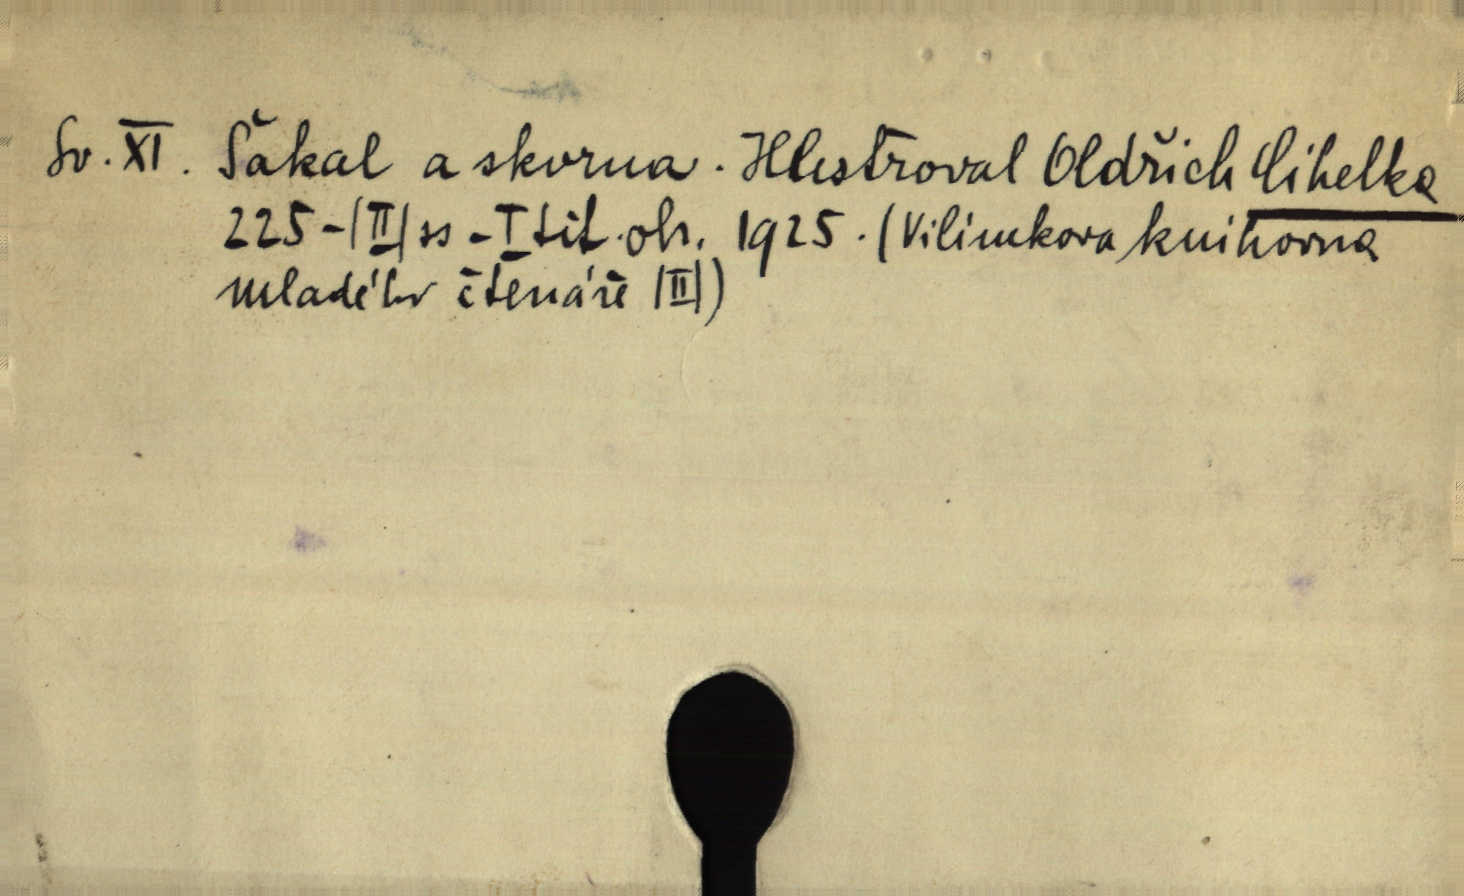 Sv. XI. Šakal a skvrna. Illustroval Oldřich Cihelka
225-|II| ss - I tit. obr. 1925. (Vilímkova knihovna
mladého čtenáře |II|)